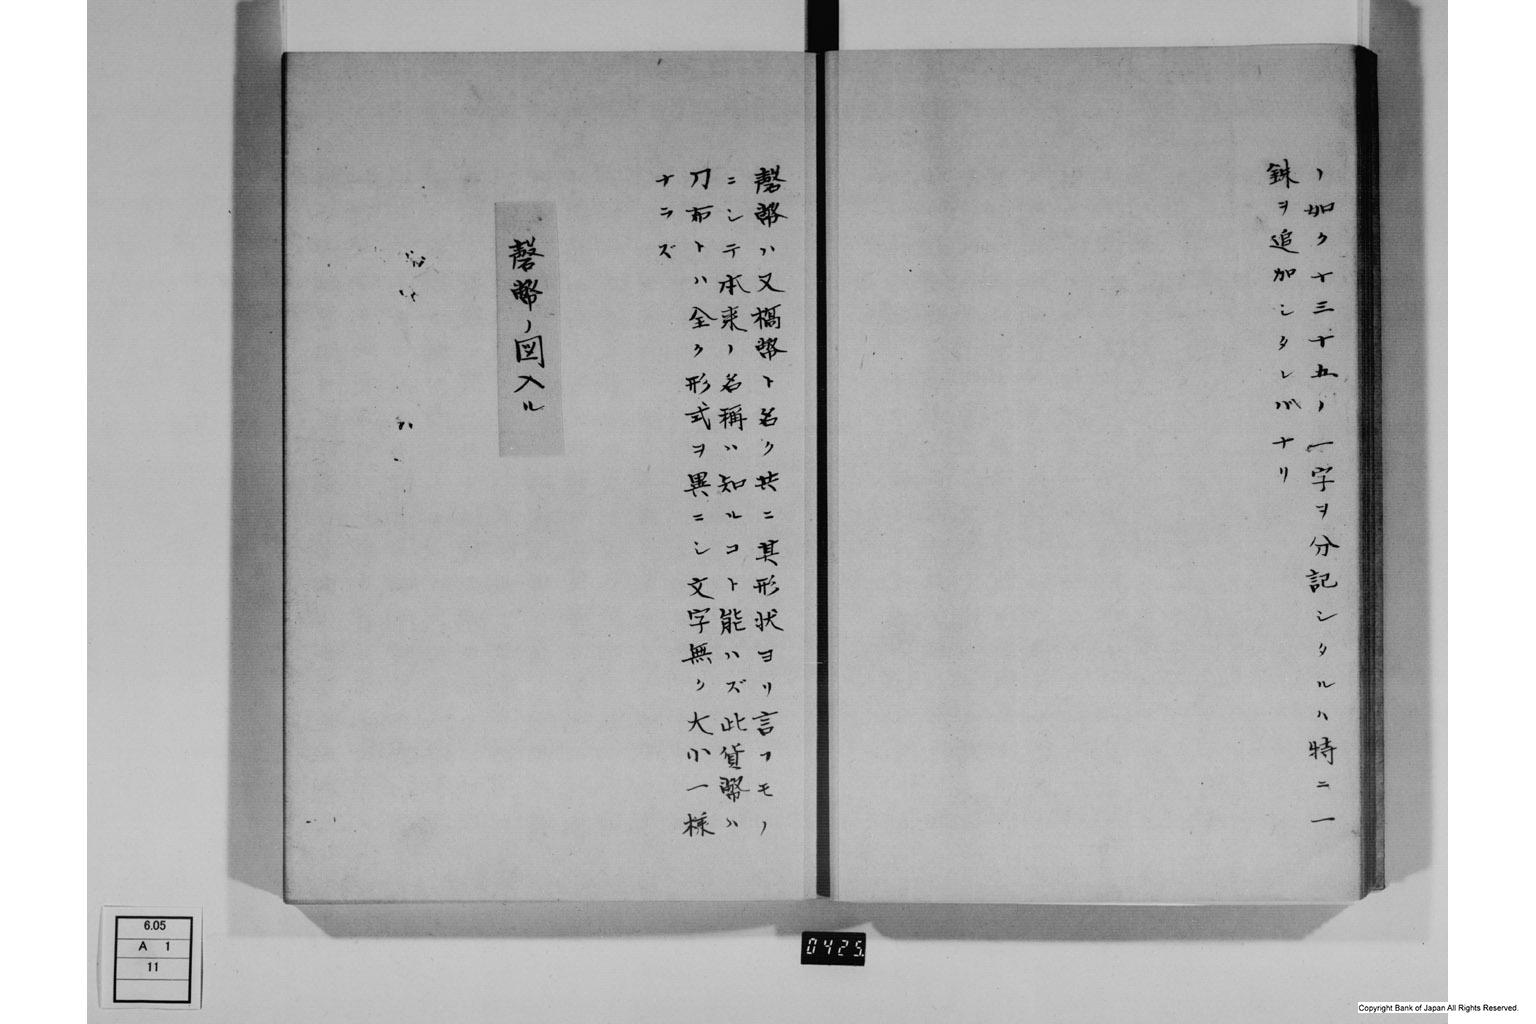 ノ如ク十三十五ノ一字ヲ分記シタルハ特ニ一
銖ヲ追加シタレバナリ
磬幣ハ又橋幣ト名ク共ニ其形状ヨリ言フモノ
ニシテ本来ノ名称ハ知ルコト能ハズ此貨幣ハ
刀布トハ全ク形式ヲ異ニシ文字無ク大小一様
ナラズ
磬幣ノ図入ル
6.05
A 1
11
0425
Copyright Bank of Japan All Rights Reserved.